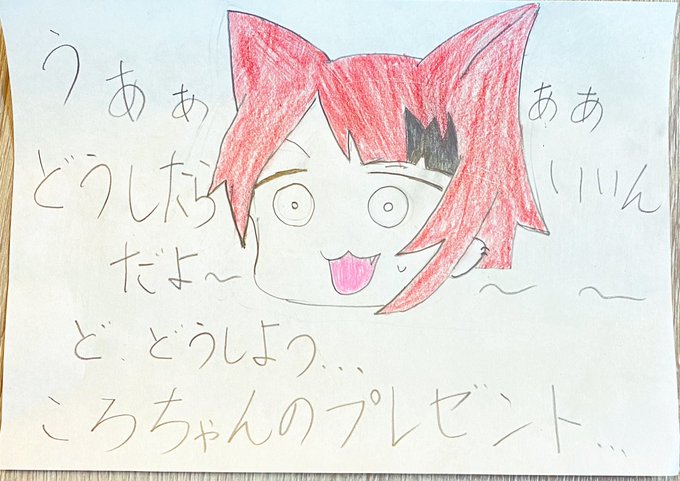 うあぁ ああ
どうしたらいいん
だよ～～～
ど、どうしよう...
ころちゃんのプレゼント...